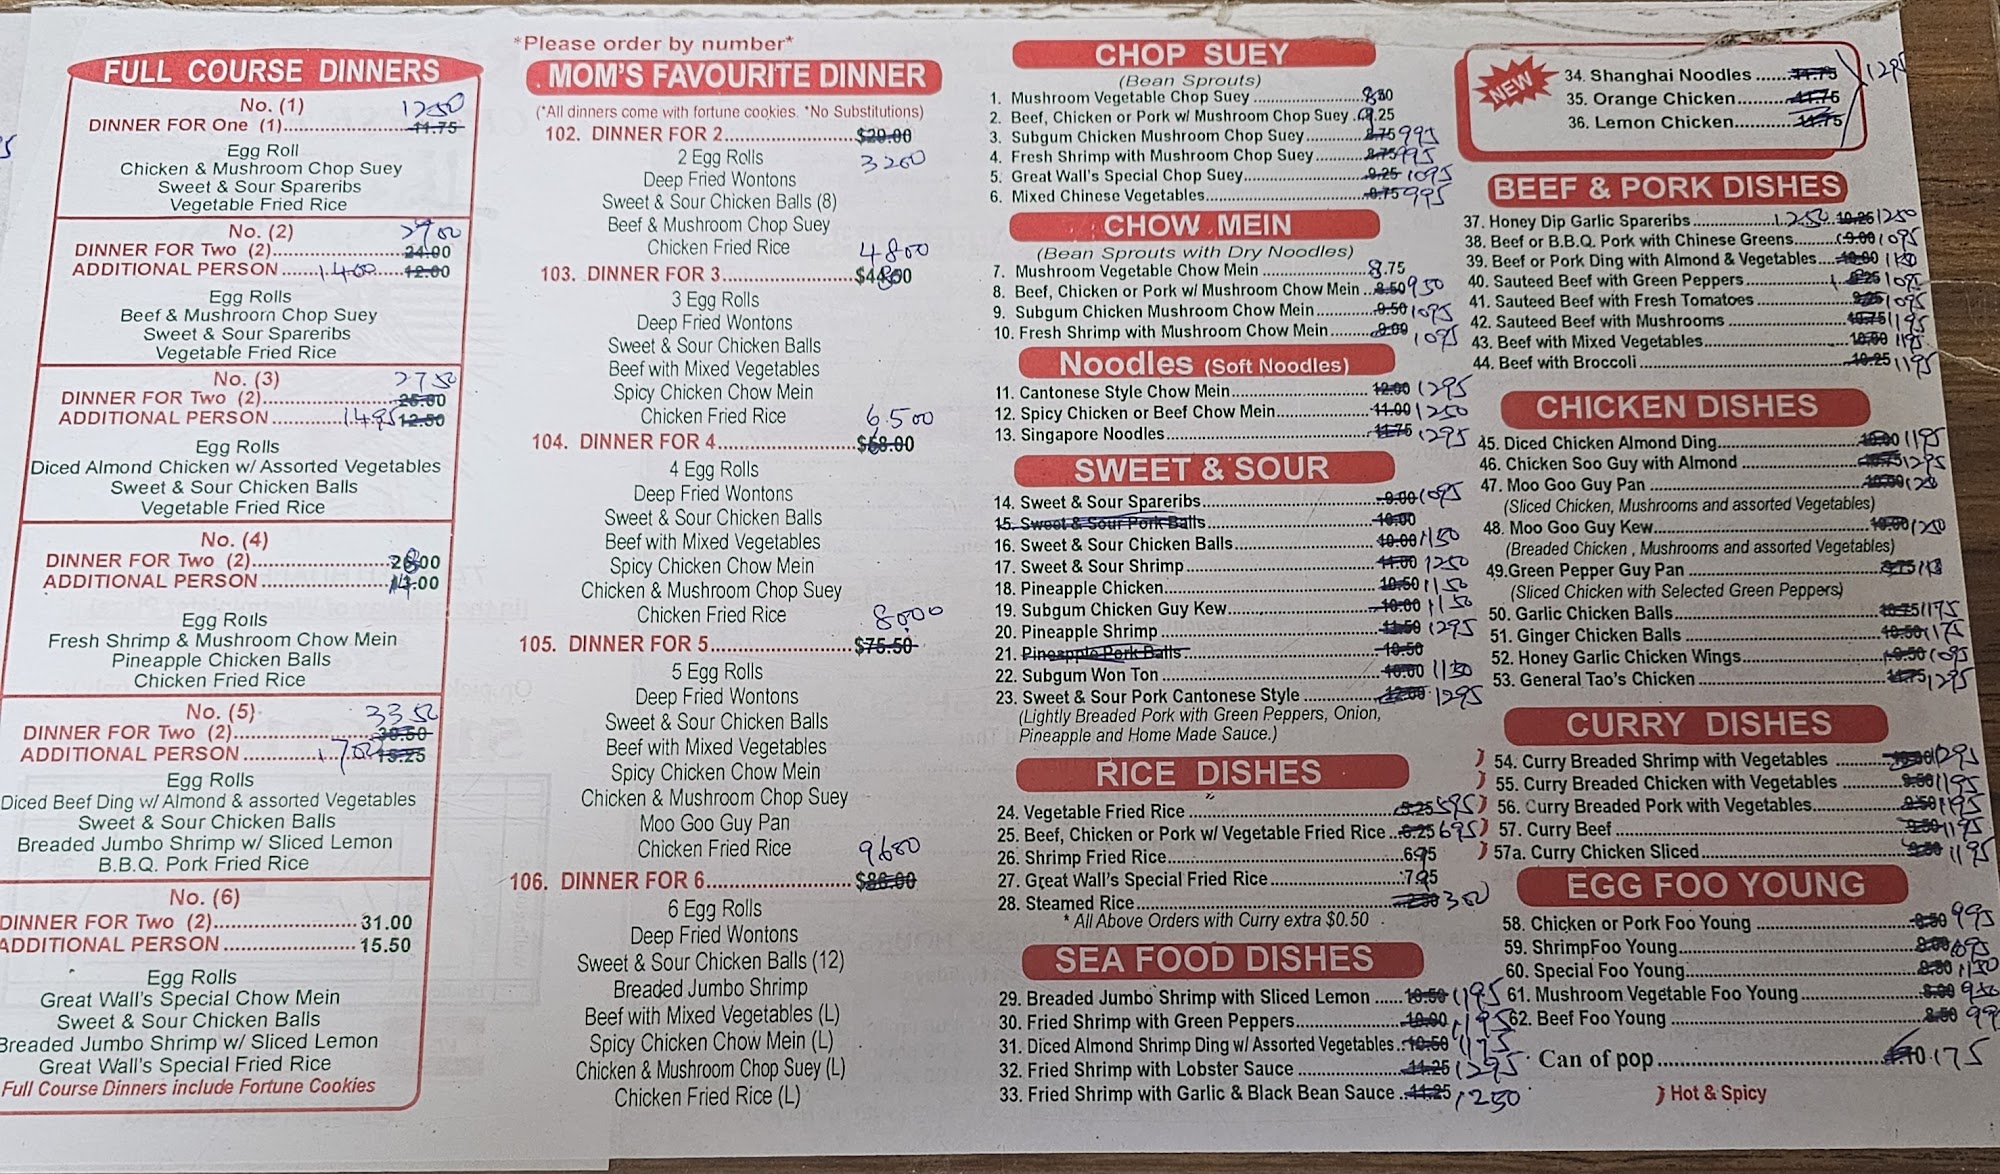 FULL COURSE DINNERS
No. (1) 1250
DINNER FOR One (1)..........11.75
Egg Roll
Chicken & Mushroom Chop Suey
Sweet & Sour Spareribs
Vegetable Fried Rice
No. (2) 2900
DINNER FOR Two (2)..........24.00
ADDITIONAL PERSON ....1400....12.00
Egg Rolls
Beef & Mushroom Chop Suey
Sweet & Sour Spareribs
Vegetable Fried Rice
No. (3) 2750
DINNER FOR Two (2)..........25.00
ADDITIONAL PERSON ..........1495 12.50
Egg Rolls
Diced Almond Chicken w/ Assorted Vegetables
Sweet & Sour Chicken Balls
Vegetable Fried Rice
No. (4)
DINNER FOR Two (2)..........28.00
ADDITIONAL PERSON ..........14.00
Egg Rolls
Fresh Shrimp & Mushroom Chow Mein
Pineapple Chicken Balls
Chicken Fried Rice
No. (5) 3350
DINNER FOR Two (2)..........30.50
ADDITIONAL PERSON ..........1700 15.25
Egg Rolls
Diced Beef Ding w/ Almond & assorted Vegetables
Sweet & Sour Chicken Balls
Breaded Jumbo Shrimp w/ Sliced Lemon
B.B.Q. Pork Fried Rice
No. (6)
DINNER FOR Two (2)..........31.00
ADDITIONAL PERSON ..........15.50
Egg Rolls
Great Wall's Special Chow Mein
Sweet & Sour Chicken Balls
Breaded Jumbo Shrimp w/ Sliced Lemon
Great Wall's Special Fried Rice
Full Course Dinners include Fortune Cookies
*Please order by number*
MOM'S FAVOURITE DINNER
(*All dinners come with fortune cookies. *No Substitutions)
102. DINNER FOR 2..........$29.00
2 Egg Rolls 3200
Deep Fried Wontons
Sweet & Sour Chicken Balls (8)
Beef & Mushroom Chop Suey
Chicken Fried Rice 4800
103. DINNER FOR 3..........$44.00
3 Egg Rolls
Deep Fried Wontons
Sweet & Sour Chicken Balls
Beef with Mixed Vegetables
Spicy Chicken Chow Mein
Chicken Fried Rice 6500
104. DINNER FOR 4..........$58.00
4 Egg Rolls
Deep Fried Wontons
Sweet & Sour Chicken Balls
Beef with Mixed Vegetables
Spicy Chicken Chow Mein
Chicken & Mushroom Chop Suey
Chicken Fried Rice 8000
105. DINNER FOR 5..........$75.50
5 Egg Rolls
Deep Fried Wontons
Sweet & Sour Chicken Balls
Beef with Mixed Vegetables
Spicy Chicken Chow Mein
Chicken & Mushroom Chop Suey
Moo Goo Guy Pan
Chicken Fried Rice 9600
106. DINNER FOR 6..........$86.00
6 Egg Rolls
Deep Fried Wontons
Sweet & Sour Chicken Balls (12)
Breaded Jumbo Shrimp
Beef with Mixed Vegetables (L)
Spicy Chicken Chow Mein (L)
Chicken & Mushroom Chop Suey (L)
Chicken Fried Rice (L)
CHOP SUEY
(Bean Sprouts)
1. Mushroom Vegetable Chop Suey ..........
2. Beef, Chicken or Pork w/ Mushroom Chop Suey .9.25
3. Subgum Chicken Mushroom Chop Suey ..........8.75 995
4. Fresh Shrimp with Mushroom Chop Suey ..........8.75 995
5. Great Wall's Special Chop Suey..........9.25 1095
6. Mixed Chinese Vegetables..........8.75 995
CHOW MEIN
(Bean Sprouts with Dry Noodles)
7. Mushroom Vegetable Chow Mein ..........8.75
8. Beef, Chicken or Pork w/ Mushroom Chow Mein ..8.50 950
9. Subgum Chicken Mushroom Chow Mein ..........9.50 1095
10. Fresh Shrimp with Mushroom Chow Mein..........9.00 1095
Noodles (Soft Noodles)
11. Cantonese Style Chow Mein..........12.00 1295
12. Spicy Chicken or Beef Chow Mein..........11.00 1250
13. Singapore Noodles..........11.75 1295
SWEET & SOUR
14. Sweet & Sour Spareribs..........9.00 1095
15. Sweet & Sour Pork Balls..........10.00
16. Sweet & Sour Chicken Balls..........10.00 1150
17. Sweet & Sour Shrimp..........11.00 1250
18. Pineapple Chicken..........10.50 1150
19. Subgum Chicken Guy Kew..........10.00 1150
20. Pineapple Shrimp..........11.50 1295
21. Pineapple Pork Balls..........10.50
22. Subgum Won Ton..........10.00 1150
23. Sweet & Sour Pork Cantonese Style ..........12.00 1295
(Lightly Breaded Pork with Green Peppers, Onion,
Pineapple and Home Made Sauce.)
RICE DISHES
24. Vegetable Fried Rice ..........5.25 595
25. Beef, Chicken or Pork w/ Vegetable Fried Rice ..6.25 695
26. Shrimp Fried Rice..........6.95
27. Great Wall's Special Fried Rice ..........7.95
28. Steamed Rice..........300
* All Above Orders with Curry extra $0.50
SEA FOOD DISHES
29. Breaded Jumbo Shrimp with Sliced Lemon ......10.50 1195
30. Fried Shrimp with Green Peppers..........10.00 1195
31. Diced Almond Shrimp Ding w/ Assorted Vegetables..10.50 1175
32. Fried Shrimp with Lobster Sauce ..........11.25 1295
33. Fried Shrimp with Garlic & Black Bean Sauce ..11.25 1250
NEW
34. Shanghai Noodles ......11.75 1295
35. Orange Chicken..........11.75
36. Lemon Chicken..........11.75
BEEF & PORK DISHES
37. Honey Dip Garlic Spareribs ..........1250 10.25 1250
38. Beef or B.B.Q. Pork with Chinese Greens........9.00 1095
39. Beef or Pork Ding with Almond & Vegetables....10.00
40. Sauteed Beef with Green Peppers ..........1095
41. Sauteed Beef with Fresh Tomatoes ..........1095
42. Sauteed Beef with Mushrooms ..........10.75 1195
43. Beef with Mixed Vegetables..........10.00 1195
44. Beef with Broccoli ..........10.25 1195
CHICKEN DISHES
45. Diced Chicken Almond Ding..........10.00 1195
46. Chicken Soo Guy with Almond ..........1295
47. Moo Goo Guy Pan ..........10.00
(Sliced Chicken, Mushrooms and assorted Vegetables)
48. Moo Goo Guy Kew..........10.00 1250
(Breaded Chicken , Mushrooms and assorted Vegetables)
49.Green Pepper Guy Pan ..........9.75
(Sliced Chicken with Selected Green Peppers)
50. Garlic Chicken Balls ..........10.75 1175
51. Ginger Chicken Balls ..........10.50 1175
52. Honey Garlic Chicken Wings..........9.50 1095
53. General Tao's Chicken ..........11.75 1295
CURRY DISHES
54. Curry Breaded Shrimp with Vegetables ..........1295
55. Curry Breaded Chicken with Vegetables ..........9.50 1195
56. Curry Breaded Pork with Vegetables..........9.50 1195
57. Curry Beef ..........9.50 1195
57a. Curry Chicken Sliced..........9.50 1195
EGG FOO YOUNG
58. Chicken or Pork Foo Young ..........8.50 995
59. ShrimpFoo Young..........1095
60. Special Foo Young..........1150
61. Mushroom Vegetable Foo Young..........8.00 950
62. Beef Foo Young ..........8.50
Can of pop..........175
Hot & Spicy